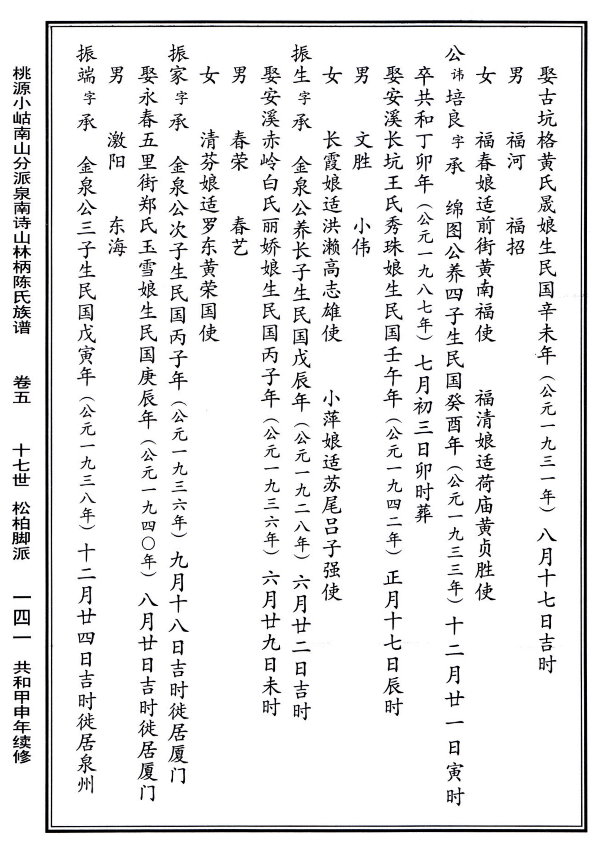 娶古坑格黄氏晟娘生民国辛未年（公元一九三一年）八月十七日吉时
男 福河 福招
女 福春娘适前街黄南福使 福清娘适荷庙黄贞胜使
公讳培良字承 绵图公养四子生民国癸酉年（公元一九三三年）十二月廿一日寅时
卒共和丁卯年（公元一九八七年）七月初三日卯时葬
娶安溪长坑王氏秀珠娘生民国壬午年（公元一九四二年）正月十七日辰时
男 文胜 小伟
女 长霞娘适洪濑高志雄使 小萍娘适苏尾吕子强使
振生字承 金泉公养长子生民国戊辰年（公元一九二八年）六月廿二日吉时
娶安溪赤岭白氏丽娇娘生民国丙子年（公元一九三六年）六月廿九日未时
男 春荣 春艺
女 清芬娘适罗东黄荣国使
振家字承 金泉公次子生民国丙子年（公元一九三六年）九月十八日吉时徙居厦门
娶永春五里街郑氏玉雪娘生民国庚辰年（公元一九四〇年）八月廿日吉时徙居厦门
男 激阳 东海
振端字承 金泉公三子生民国戊寅年（公元一九三八年）十二月廿四日吉时徙居泉州
桃源小岵南山分派泉南诗山林柄陈氏族谱 卷五 十七世 松柏脚派 一四一 共和甲申年续修